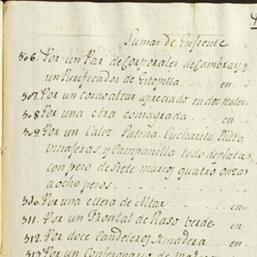 Suma de Enfrente
506. Por un Par de Corporales de Cambray, y
un Purificador de Estopilla en
507. Por un cornoaltar apreciado en dos reales
508 Por una Ara consagrada en
509. Por un Caliz, Patena, Cucharita, Plato,
vinageras, y Campanilla todo de plata
con peso de Siete marcos quatro onzas
a ocho pesos
510. Por una cuera de Altar en
511. Por un Frontal de Raso verde en
512. Por doce Candeleros de madera en
513 Por un Confesonario de